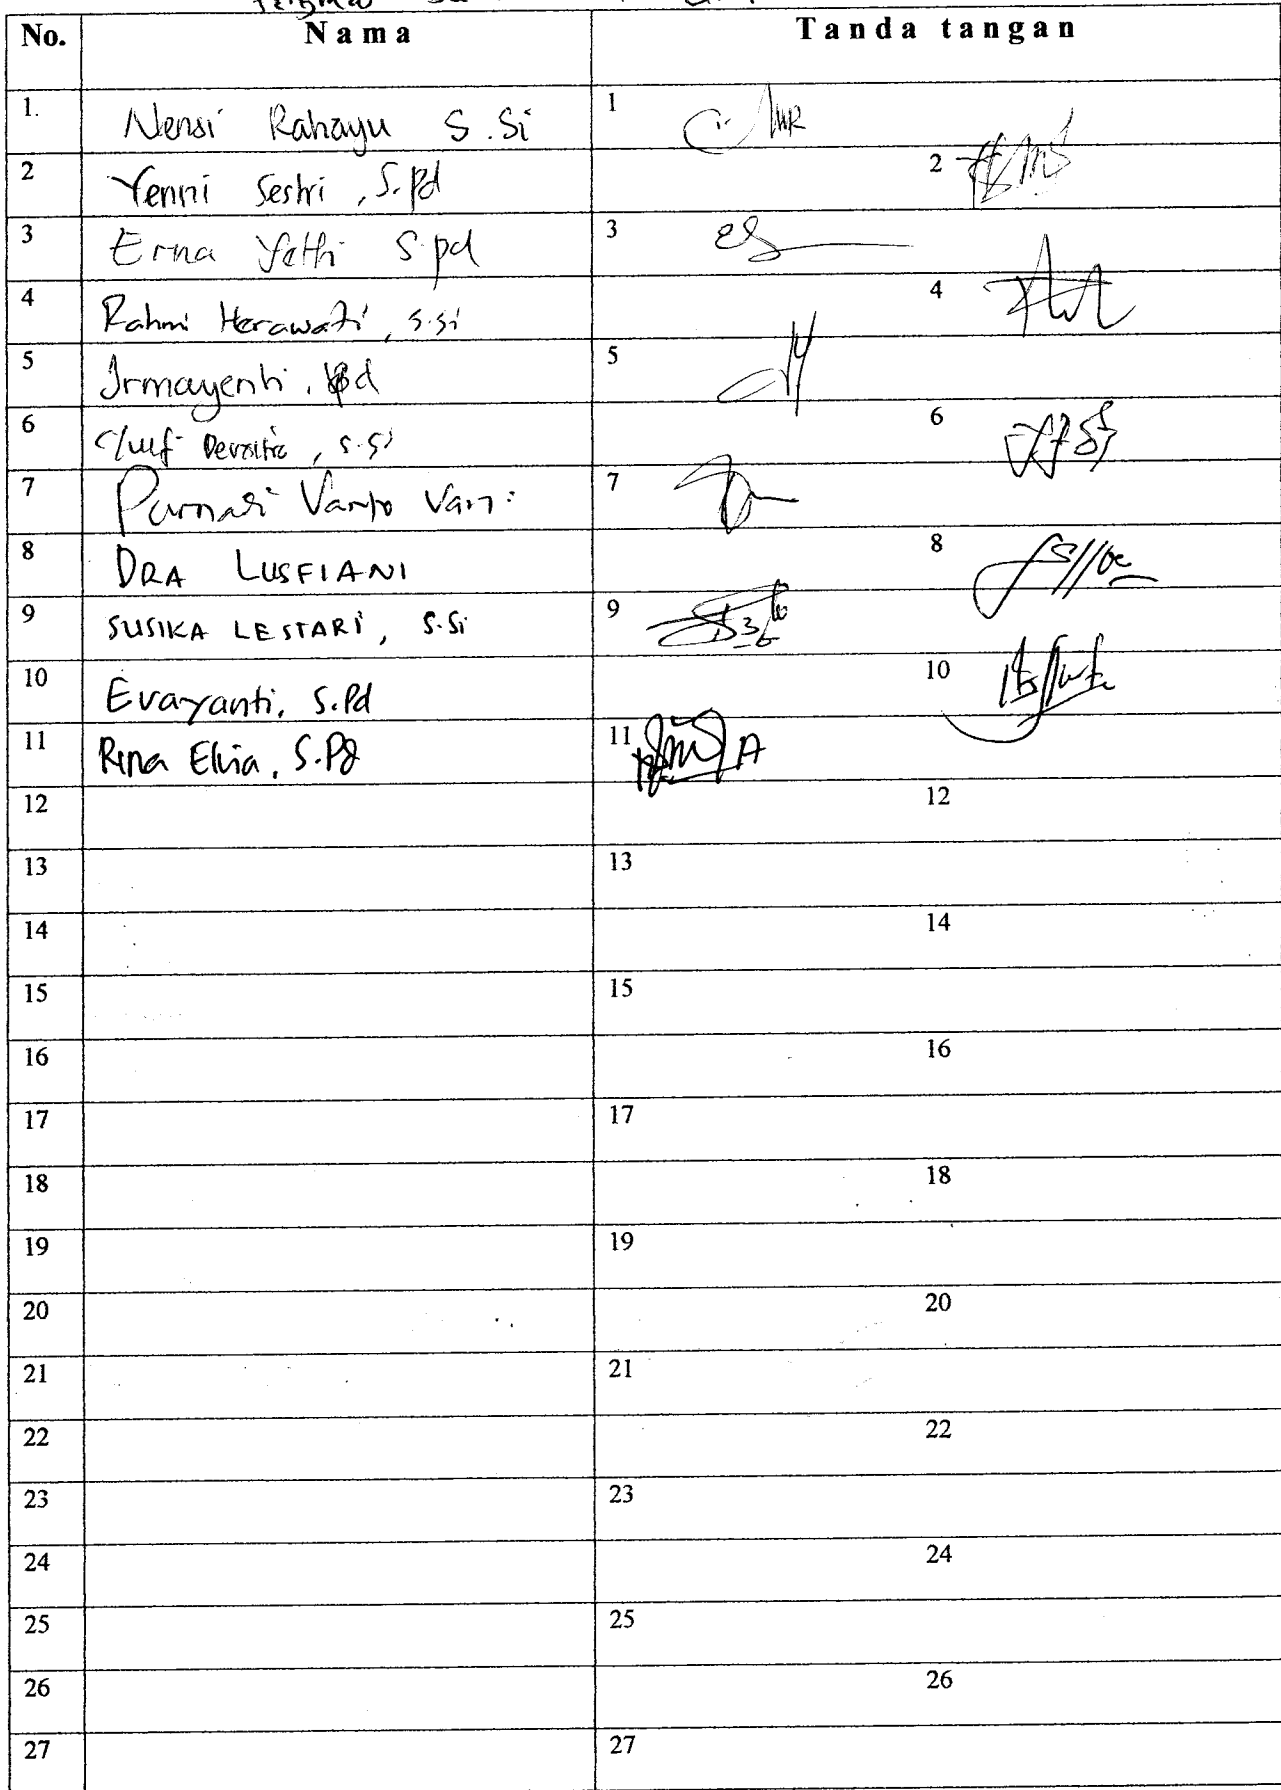 No. Nama Tanda tangan
1. Nensi Rahayu S.Si 1
2 Yenni Sestri, S.Pd 2
3 Erna Yetti S.pd 3
4 Rahmi Herawati, S.si 4
5 Irmayenti, 5
6 Devsita, S.Si 6
7 Purnasi 7
8 DRA LUSFIANI 8
9 SUSIKA LESTARI, S.Si 9
10 Evayanti, S.Pd 10
11 Rina Elvia, S.Pd 11
12 12
13 13
14 14
15 15
16 16
17 17
18 18
19 19
20 20
21 21
22 22
23 23
24 24
25 25
26 26
27 27